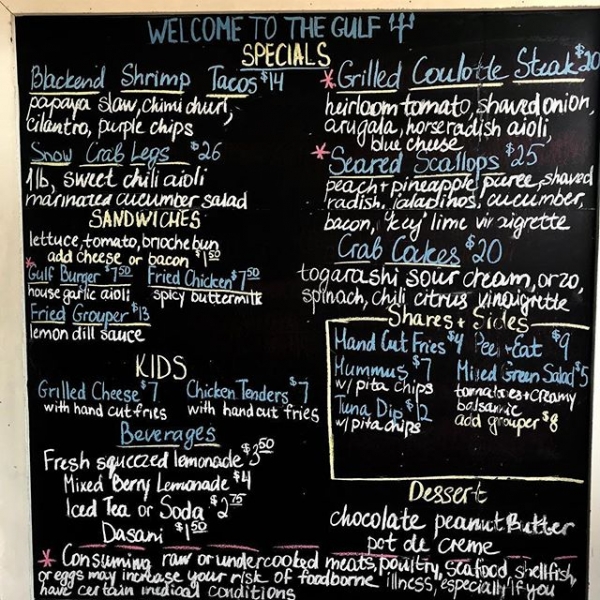 WELCOME TO THE GULF
SPECIALS
Blackend Shrimp Tacos $14
papaya slaw, chimi churi,
cilantro, purple chips
Snow Crab Legs $26
1 lb, sweet chili aioli
marinated cucumber salad
SANDWICHES
lettuce, tomato, brioche bun
add cheese or bacon $1.50
*Gulf Burger $7.50 Fried Chicken $7.50
house garlic aioli spicy buttermilk
Fried Grouper $13
lemon dill sauce
KIDS
Grilled Cheese $7 Chicken Tenders $7
with hand cut fries with hand cut fries
Beverages
Fresh squeezed lemonade $3.50
Mixed Berry Lemonade $4
Iced Tea or Soda $2.75
Dasani $1.50
*Grilled Coulotte Steak $20
heirloom tomato, shaved onion,
arugala, horseradish aioli,
blue cheese
*Seared Scallops $25
peach + pineapple puree, shaved
radish, jalapinos, cucumber,
bacon, "key" lime vinaigrette
Crab Cakes $20
togarashi sour cream, orzo,
spinach, chili citrus vinaigrette
Shares + Sides
Hand Cut Fries $4 Peel+Eat $9
Hummus $7 Mixed Green Salad $5
w/ pita chips tomatoes + creamy
Tuna Dip $12 balsamic
w/ pita chips add grouper $8
Dessert
chocolate peanut Butter
pot de creme
* Consuming raw or undercooked meats, poultry, seafood, shellfish,
or eggs may increase your risk of foodborne illness, especially if you
have certain medical conditions